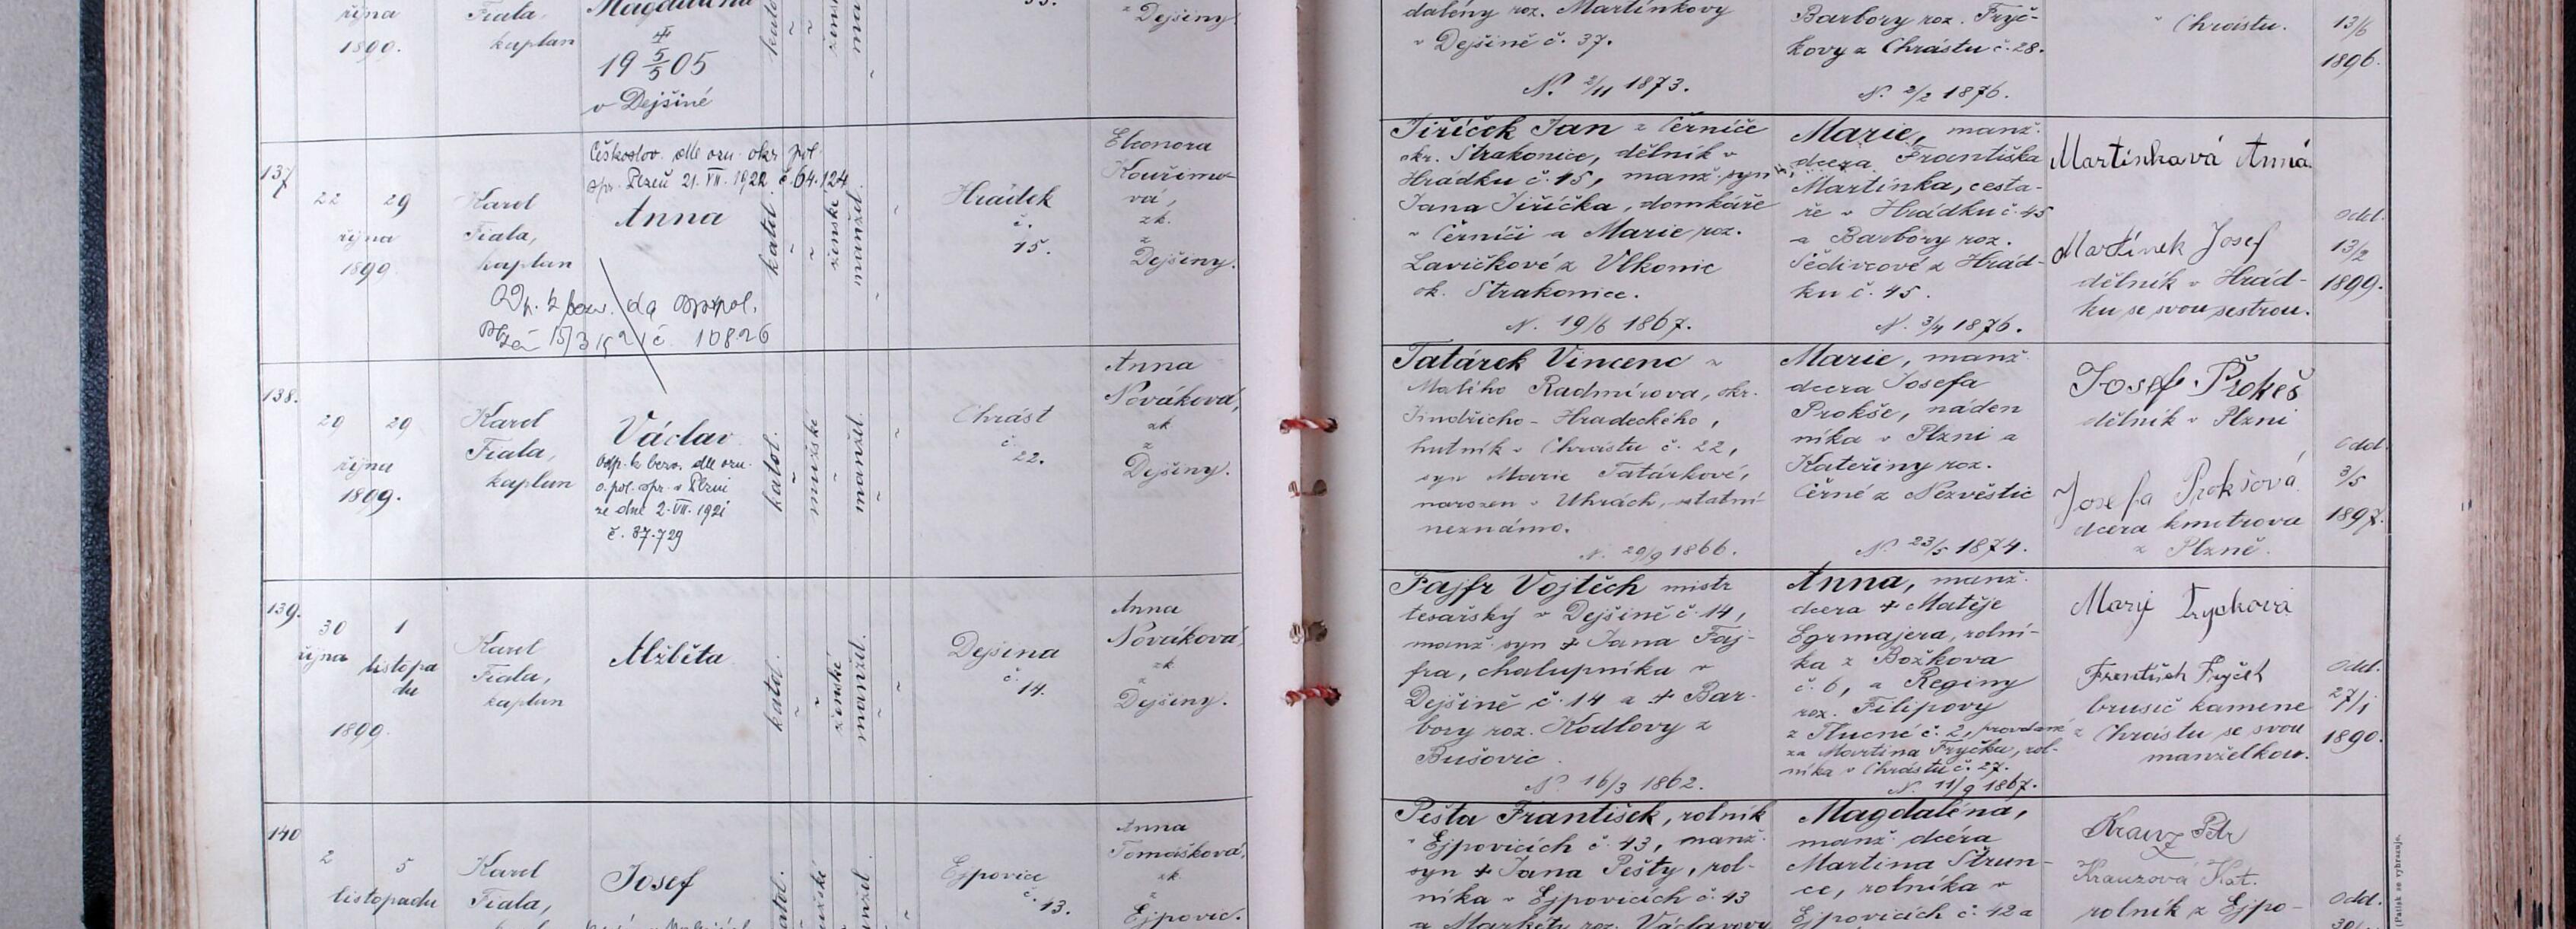 října
1890.
Fiala,
kaplan
Magdalena
19 5/5 05
v Dejšině
Dejšiny.
dalény roz. Martínkovy
v Dejšině č. 37.
N. 2/11 1873.
Barbory roz. Fryč-
kovy z Chrástu č. 28.
N. 2/2 1876.
Chrástu.
13/6
1896.
137
22 29
října
1899
Karel
Fiala,
kaplan
Českoslov. dle ozn. okr. pol.
spr. Plzeň 21. VII. 1922 č. 64.124
Anna
15/3 1921 č. 10826
katol.
ženské
manžel.
Hrádek
č.
15.
Eleonora
Kouřimo-
vá,
zk.
z
Dejšiny.
Jiříček Jan z Černíče
okr. Strakonice, dělník v
Hrádku č. 15, manž. syn
Jana Jiříčka, domkáře
v Černíči a Marie roz.
Lavičkové z Vlkonic
ok. Strakonice.
N. 19/6 1867.
Marie, manž.
dcera Františka
Martínka, cesta-
ře v Hrádku č. 45
a Barbory roz.
Šedivcové z Hrád-
ku č. 45.
N. 3/4 1876.
Martínková Anna
Martínek Josef
dělník v Hrád-
ku se svou sestrou.
Odd.
13/2
1899.
138.
29 29
října
1899.
Karel
Fiala,
kaplan
Václav
Odp. k bezv. dle ozn.
o. pol. spr. v Plzni
ze dne 2. VII. 1921
č. 37.729
katol.
mužské
manžel.
Chrást
č.
22.
Anna
Nováková,
zk.
z
Dejšiny.
Tatárek Vincenc z
Malého Radmírova, okr.
Jindřicho-Hradeckého,
hutník v Chrástu č. 22,
syn Marie Tatárkové,
narozen v Uhrách, ostatní
neznámo.
N. 29/9 1866.
Marie, manž.
dcera Josefa
Prokše, náden
níka v Plzni a
Kateřiny roz.
Černé z Nezvěstic
N. 23/5 1874.
Josef Prokeš
dělník v Plzni
Josefa Prokšová
dcera kmotrova
z Plzně.
Odd.
3/5
1897.
139.
30 1
října listopa
du
1899.
Karel
Fiala,
kaplan
Alžběta
katol.
ženské
manžel.
Dejšina
č.
14.
Anna
Nováková,
zk.
z
Dejšiny.
Fajfr Vojtěch mistr
tesařský v Dejšině č. 14,
manž. syn + Jana Faj-
fra, chalupníka v
Dejšině č. 14 a + Bar-
bory roz. Kodlovy z
Bušovic.
N. 16/3 1862.
Anna, manž.
dcera + Matěje
Egrmajera, rolní-
ka z Božkova
č. 6, a Reginy
roz. Filipovy
z Tlucné č. 2, provdané
za Martina Fryčka, rol-
níka v Chrástu č. 27.
N. 11/9 1867.
Mary Fryčková
František Fryček
brusič kamene
z Chrástu se svou
manželkou.
Odd.
27/1
1890.
140
2 5
listopadu
Karel
Fiala,
Josef
katol.
mužské
manžel.
Ejpovice
č.
13.
Anna
Tomášková,
zk.
z
Ejpovic.
Pešta František, rolník
v Ejpovicích č. 43, manž.
syn + Jana Pešty, rol-
níka v Ejpovicích č. 43
a Markéty roz. Václavovy
Magdaléna,
manž. dcera
Martina Štrun-
ce, rolníka v
Ejpovicích č. 42 a
Krauz Petr
Krauzová Kat.
rolník z Ejpo-
Odd.